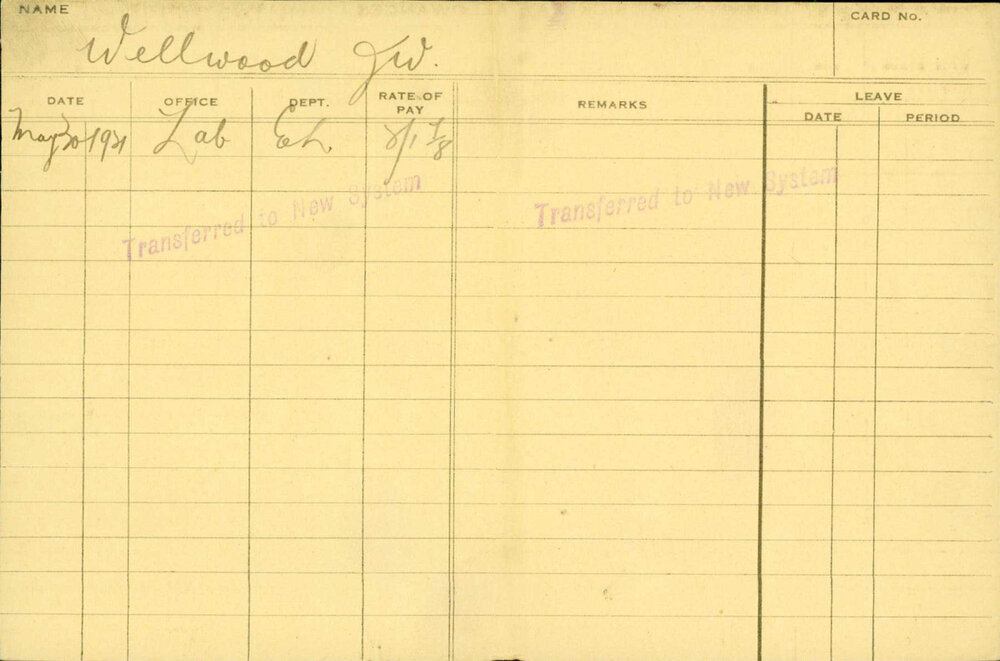 NAME
CARD No.
Wellwood J W.
DATE OFFICE DEPT. RATE OF PAY REMARKS LEAVE
DATE PERIOD
May 30 1921 Lab Eh
Transferred to New System Transferred to New System